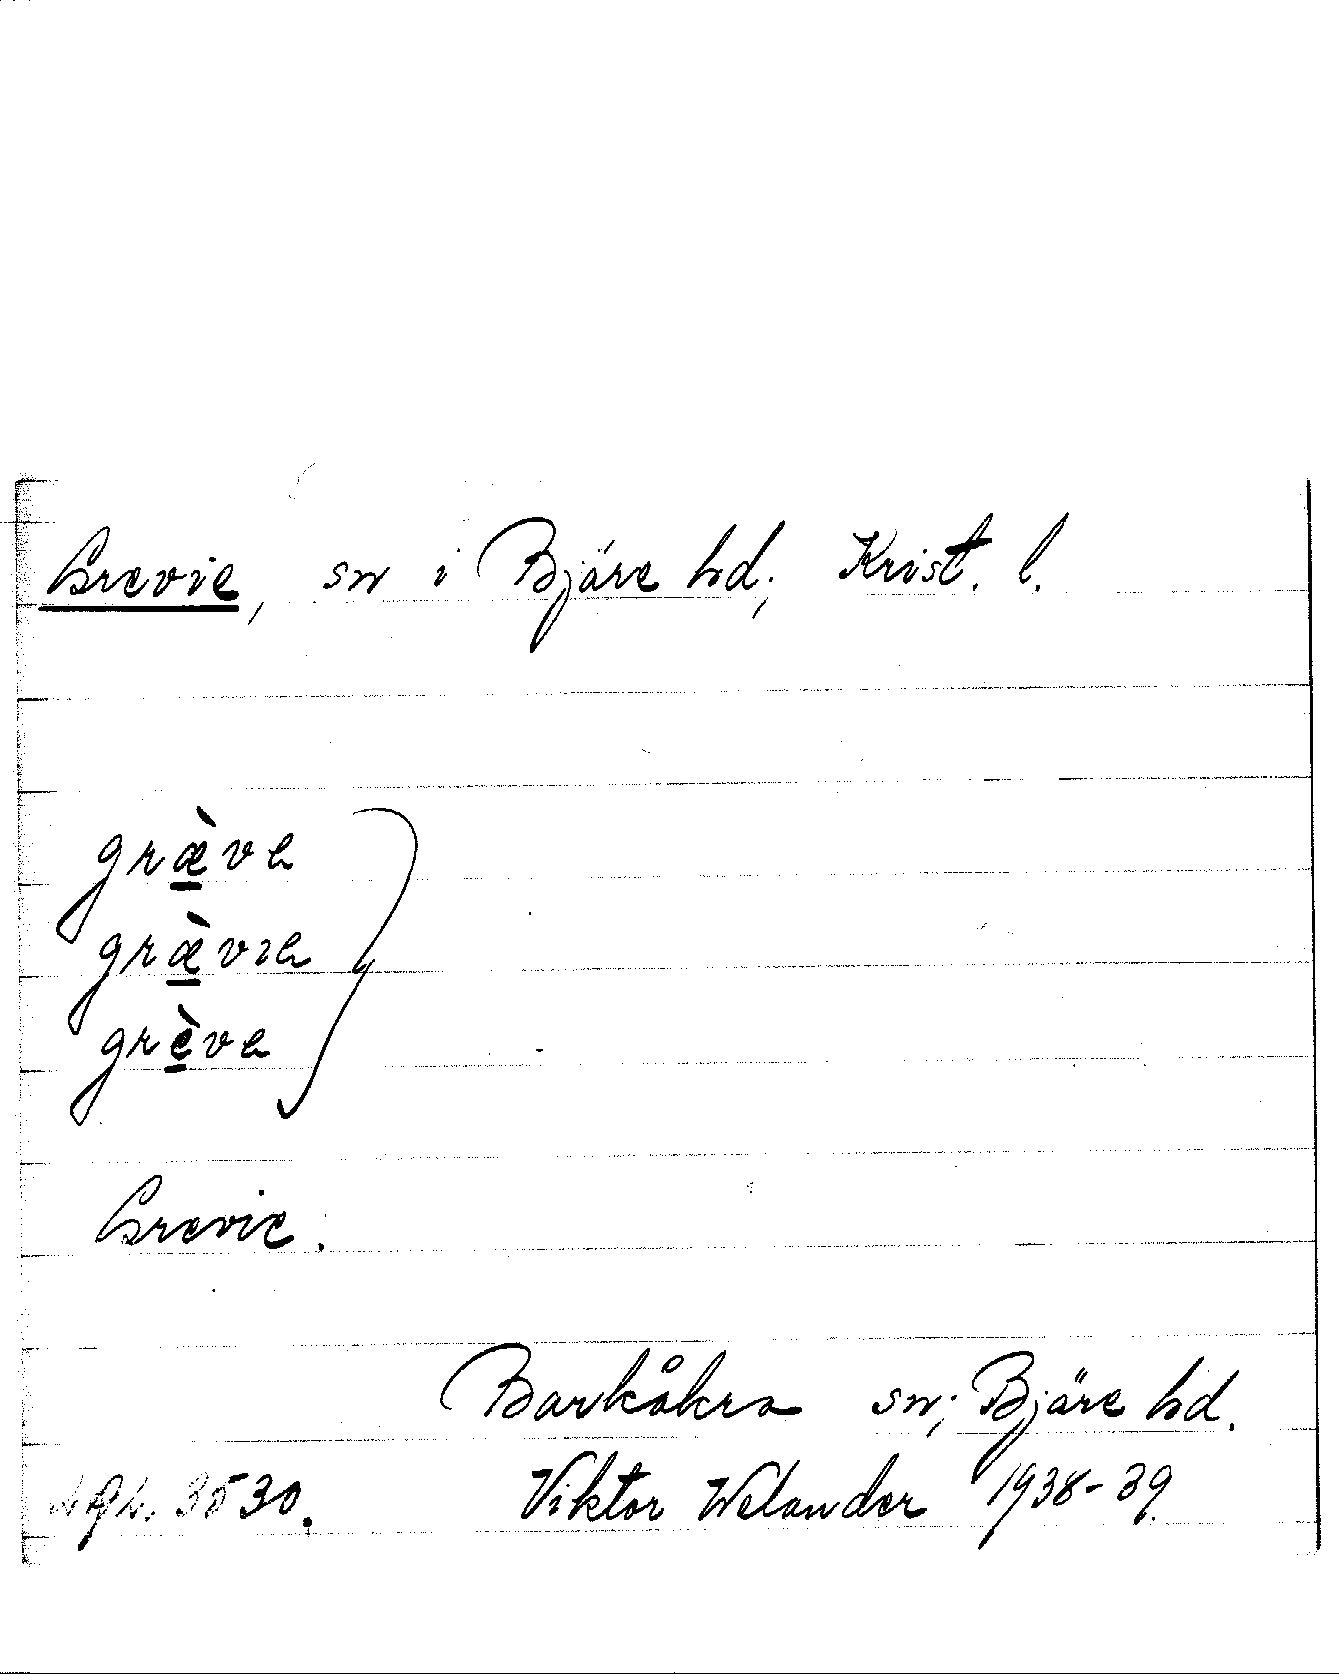 Grevie, sn i Bjäre hd; Krist. l.
græ̱̀ve
græ̱̀vıe
grè̱ve
Grevie.
Barkåkra sn; Bjäre hd.
3530. Viktor Welander 1938-39.